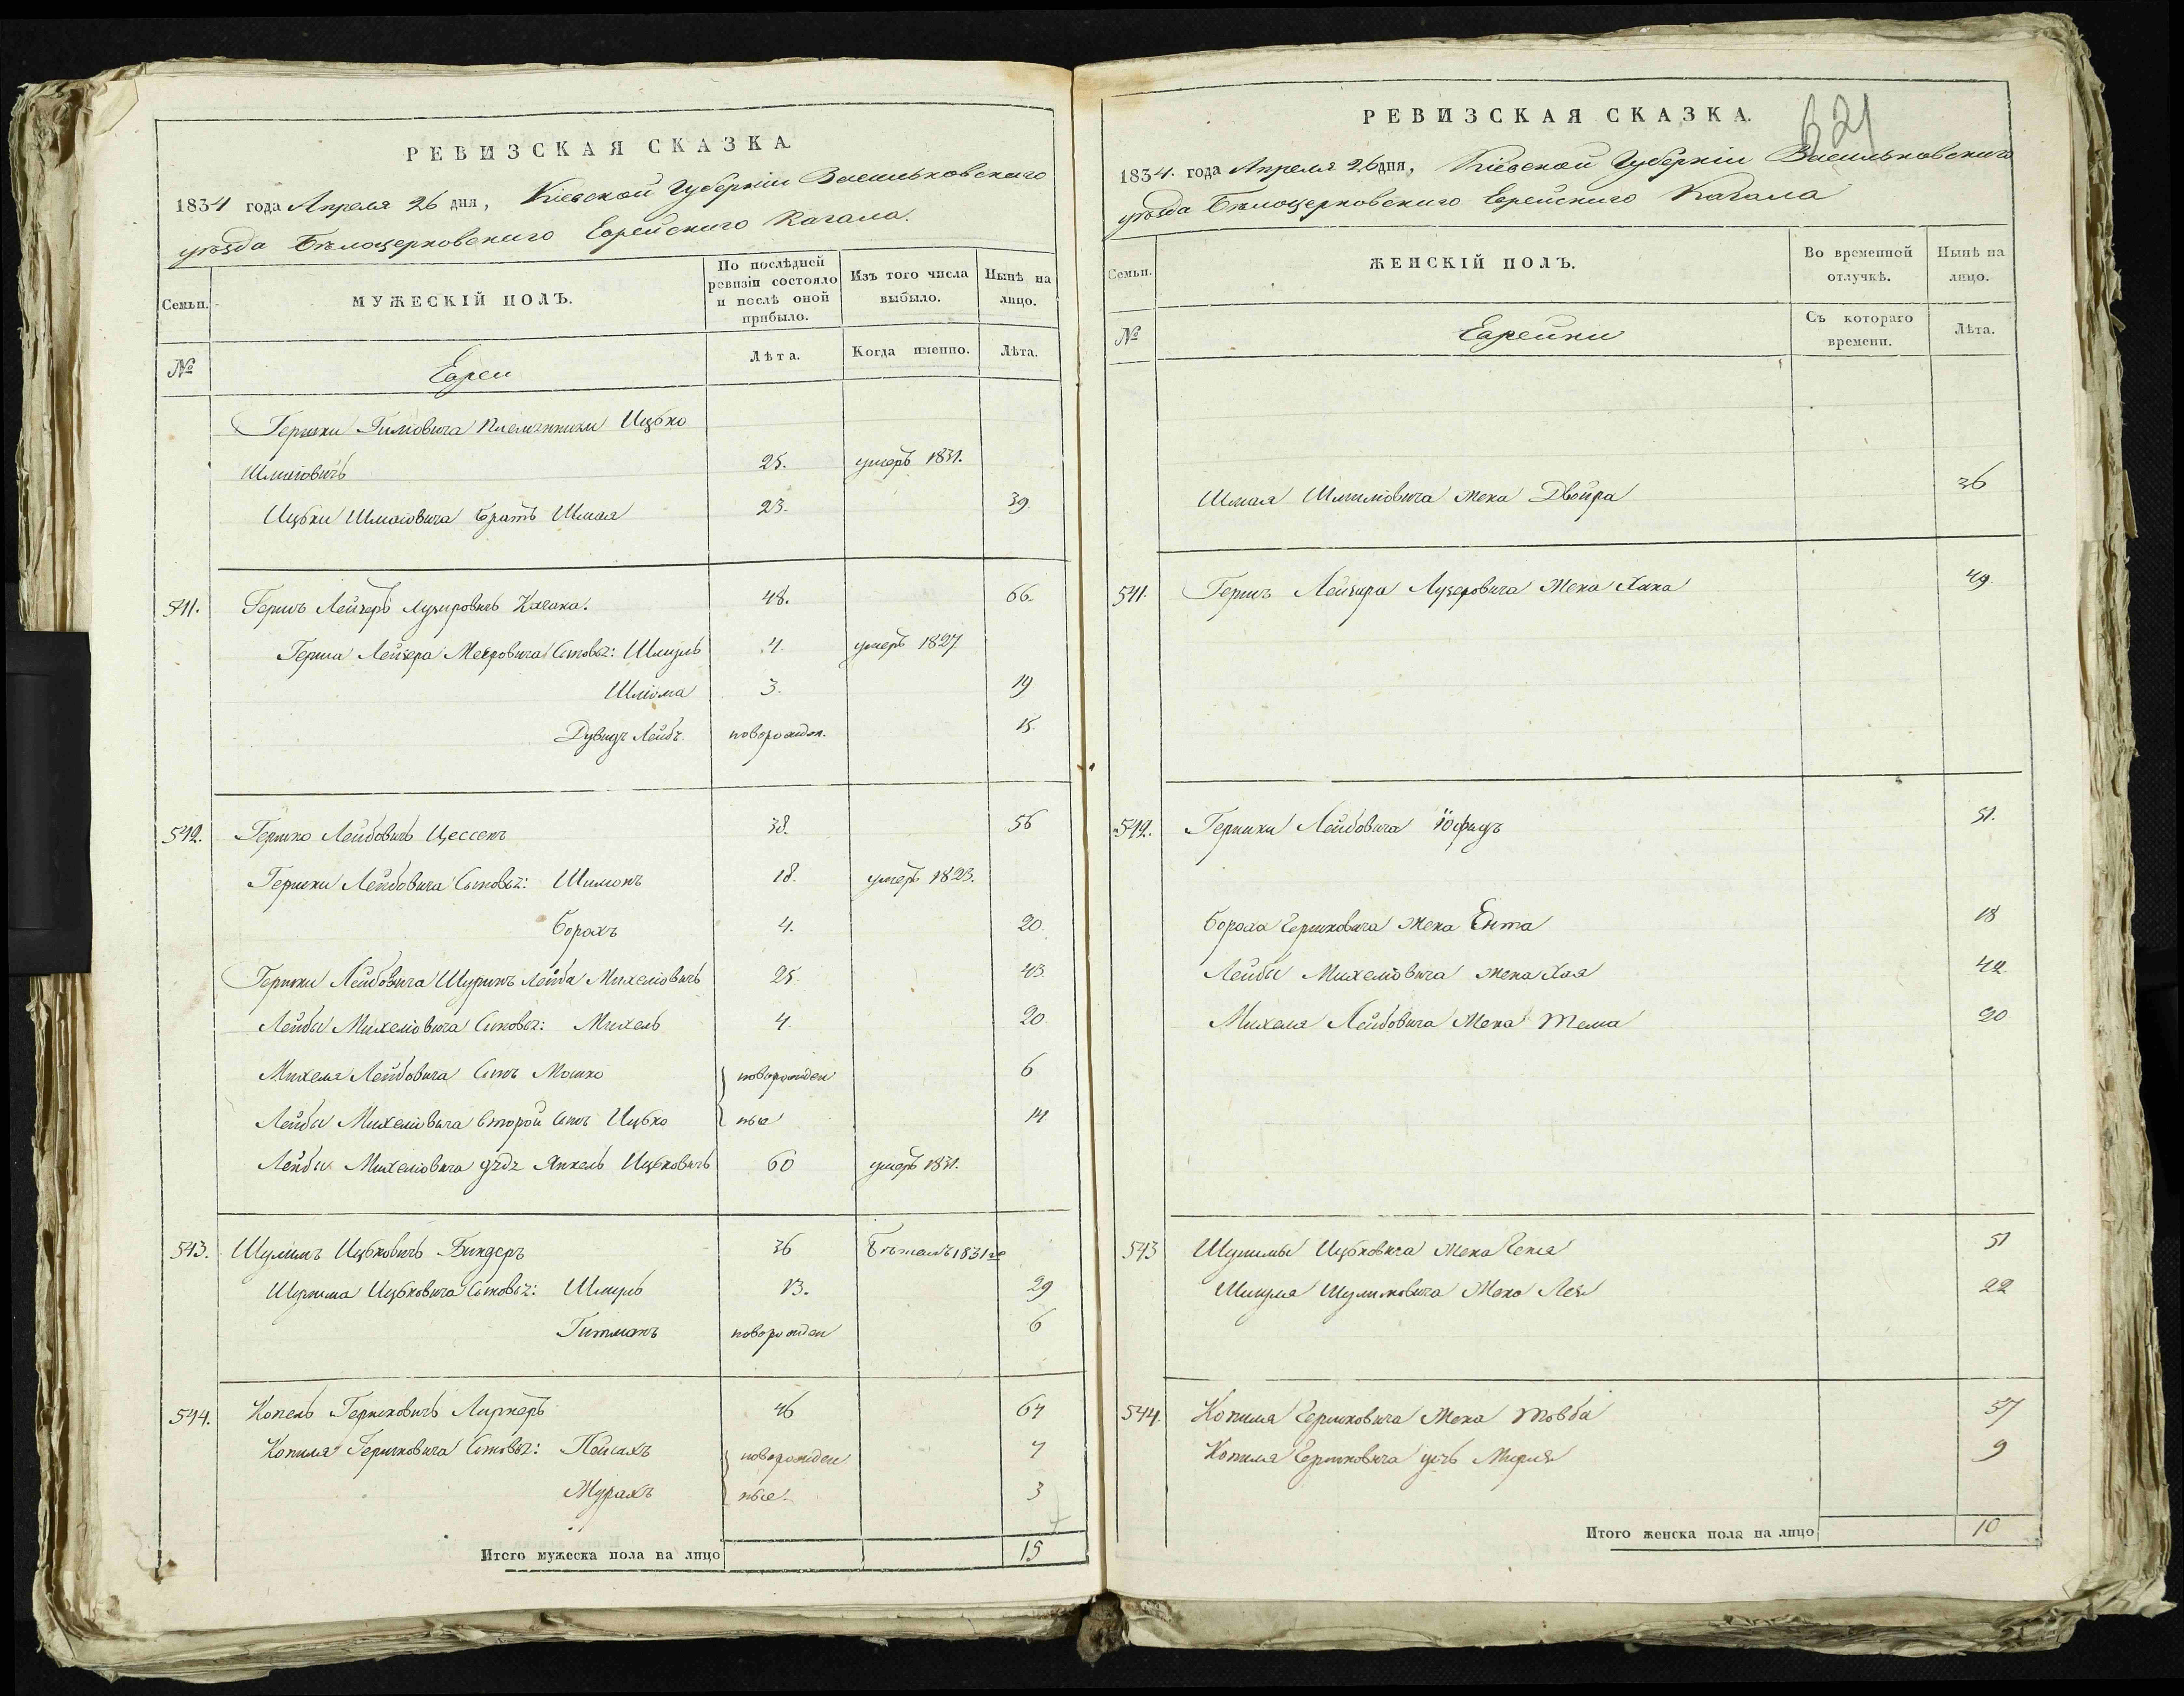 РЕВИЗСКАЯ СКАЗКА.
1834 года Апреля 26 дня, Кіевской Губерніи Васильковскаго
уѣзда Бѣлоцерковскаго Еврейскаго Кагала.
Семьи.
МУЖЕСКІЙ ПОЛЪ.
По послѣдней ревизіи состояло и послѣ оной прибыло.
Изъ того числа выбыло.
Нынѣ на лицо.
№
Евреи
Лѣта.
Когда именно.
Лѣта.
Гершки племянники Ицько
Шмиловичъ 25. умеръ 1831.
Ицьки Шмиловича братъ Шмая 23. 39
541. Гершъ Лейзеръ Лузеровичъ 48. 66.
Герша Лейзера Сыновья: Шмуль 4 умеръ 1827
Шліома 3. 19
Дувидъ Лейбъ. новорожден. 15.
542. Гершко Лейбовичъ Цессенъ 38. 56
Гершки Лейбовича Сыновья: Шимонъ 18. умеръ 1823.
Борахъ 4. 20.
Гершки Лейбовича Шуринъ Лейба Михеліовичъ 25 43
Лейбы Михеліовича Сыновья: Михель 4. 20
Михеля Лейбовича Сынъ Мошко новорожден 6
Лейбы Михеліовича второй Сынъ Ицько ные 14
Лейбы Михеліовича дядя Янкель Ицьковичъ 60 умеръ 1831.
543. Шулимъ Ицьковичъ Биндеръ 36 Бежалъ 1831го
Шулима Ицьковича Сыновья: Шмуль 13. 29
Гитманъ новорожден 6
544. Копель Гершковичъ 46 64
Копиля Гершковича Сыновья: Пейсахъ новорожден 7
Мурахъ ные. 3
Итого мужеска пола на лицо 15
621
РЕВИЗСКАЯ СКАЗКА.
1834. года Апреля 26 дня, Кіевской Губерніи Васильковскаго
уѣзда Бѣлоцерковскаго Еврейскаго Кагала
Семьи.
ЖЕНСКІЙ ПОЛЪ.
Во временной отлучкѣ.
Нынѣ на лицо.
№
Еврейки
Съ котораго времени.
Лѣта.
Шмая Шмиліовича жена Двойра 36
541. Гершъ Лейзера Лузеровича жена Хана 49
542. Гершки Лейбовича 51.
Бораха Гершковича жена Ента 18
Лейбы Михеліовича жена Хая 42
Михеля Лейбовича жена Тема 20
543 Шулимы Ицьковича жена Геня 51
Шмуля Шулимовича жена Лея 22
544. Копиля Гершковича жена Товба 57
Копиля Гершковича дочь 9
Итого женска пола на лицо 10